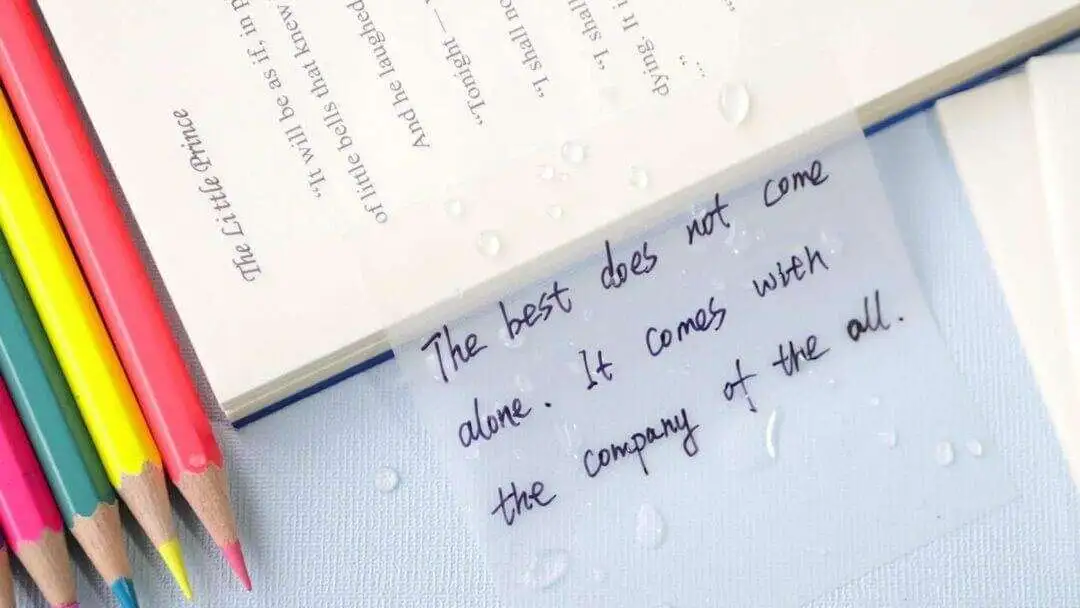 The Little Prince
"It will be as if, in p
of little bells that knew
And he laughed
"Tonight —
"I shall no
"I shall
dying. It i
..."
The best does not come
alone. It comes with
the company of the all.